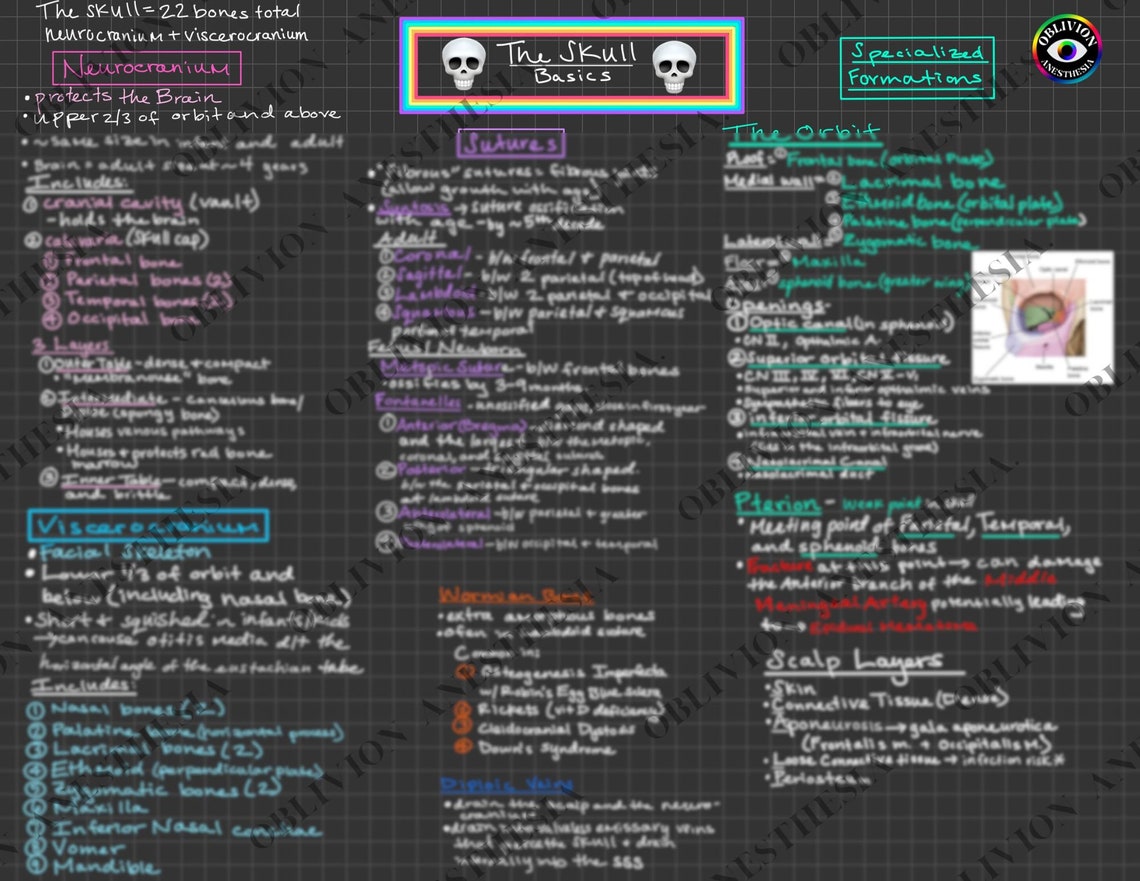 The Skull = 22 bones total
neurocranium + viscerocranium
Neurocranium
• protects the Brain
• upper 2/3 of orbit and above
• ~ same size in infant and adult
• Brain = adult size at ~ 4 years
Includes:
① cranial cavity (vault)
- holds the brain
② calvaria (skull cap)
① Frontal bone
② Parietal bones (2)
③ Temporal bones (2)
④ Occipital bone
3 Layers
① Outer Table - dense + compact
• "Membranous" bone
② Intermediate - cancellous bone/
Diploe (spongy bone)
• Houses venous pathways
• Houses + protects red bone
marrow
③ Inner Table - compact, dense,
and brittle
Viscerocranium
• Facial Skeleton
• Lower 1/3 of orbit and
below (including nasal bone)
• Short + squished in infants/kids
→ can cause otitis media d/t the
horizontal angle of the eustachian tube
Includes:
① Nasal bones (2)
② Palatine bone (horizontal process)
③ Lacrimal bones (2)
④ Ethmoid (perpendicular plate)
⑤ Zygomatic bones (2)
⑥ Maxilla
⑦ Inferior Nasal conchae
⑧ Vomer
⑨ Mandible
The Skull
Basics
Sutures
• "Fibrous" sutures = fibrous joints
(allow growth with age)
• Synostosis → suture ossification
with age - by ~ 5th decade
Adult
① Coronal - b/w frontal + parietal
② Sagittal - b/w 2 parietal (top of head)
③ Lambdoid - b/w 2 parietal + occipital
④ Squamous - b/w parietal + squamous
part of temporal
Fetus/Newborn
Metopic Suture - b/w frontal bones
• ossifies by 3-9 months
Fontanelles - unossified
① Anterior (Bregma) - diamond shaped
and the largest
② Posterior - triangular shaped
b/w the parietal + occipital bones
at lambdoid suture
③ Anterolateral - b/w parietal + greater
sphenoid
④ Posterolateral - b/w occipital + temporal
Wormian Bones
• extra bones
• often lambdoid suture
Common in:
① Osteogenesis Imperfecta
w/ Robin's Egg Blue sclera
② Rickets (vit D deficiency)
③ Cleidocranial Dystosis
④ Down's Syndrome
Diploic Veins
• drain the scalp and the neuro-
cranium
• drain into valveless emissary veins
that pierce the skull + drain
internally into the SSS
Specialized
Formations
OBLIVION
ANESTHESIA
The Orbit
Roof = ① Frontal bone (orbital plate)
Medial wall = ① Lacrimal bone
② Ethmoid bone (orbital plate)
③ Palatine bone (perpendicular plate)
Lateral wall = Zygomatic bone
Floor = Maxilla
sphenoid bone (greater wing)
Openings -
① Optic canal (in sphenoid)
• CN II, Opthalmic A.
② Superior orbital fissure
• CN III, IV, VI, CN V-V1
• superior and inferior opthalmic veins
• sympathetic fibers to eye
③ inferior orbital fissure
• infraorbital vein + infraorbital nerve
(lies in the infraorbital groove)
④ Nasolacrimal Canal
• nasolacrimal duct
Pterion - weak point in skull
• Meeting point of Parietal, Temporal,
and sphenoid bones
• Fracture at this point → can damage
the Anterior branch of the Middle
Meningeal Artery potentially leading
to → Epidural Hematoma
Scalp Layers
• Skin
• Connective Tissue (Dense)
• Aponeurosis → galea aponeurotica
(Frontalis m. + Occipitalis M)
• Loose Connective tissue → infection risk*
• Periosteum